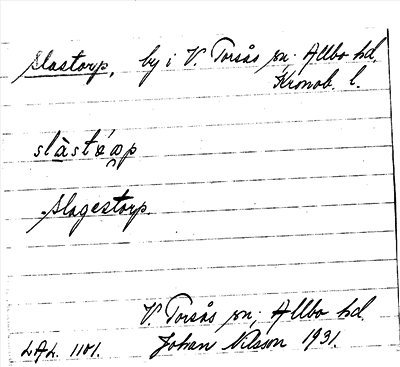 Slastorp, by i V. Torsås sn. Allbo hd,
Kronob. l.
Slagestorp.
V. Torsås sn, Allbo hd.
LAL. 1101. Johan Nilsson 1931.